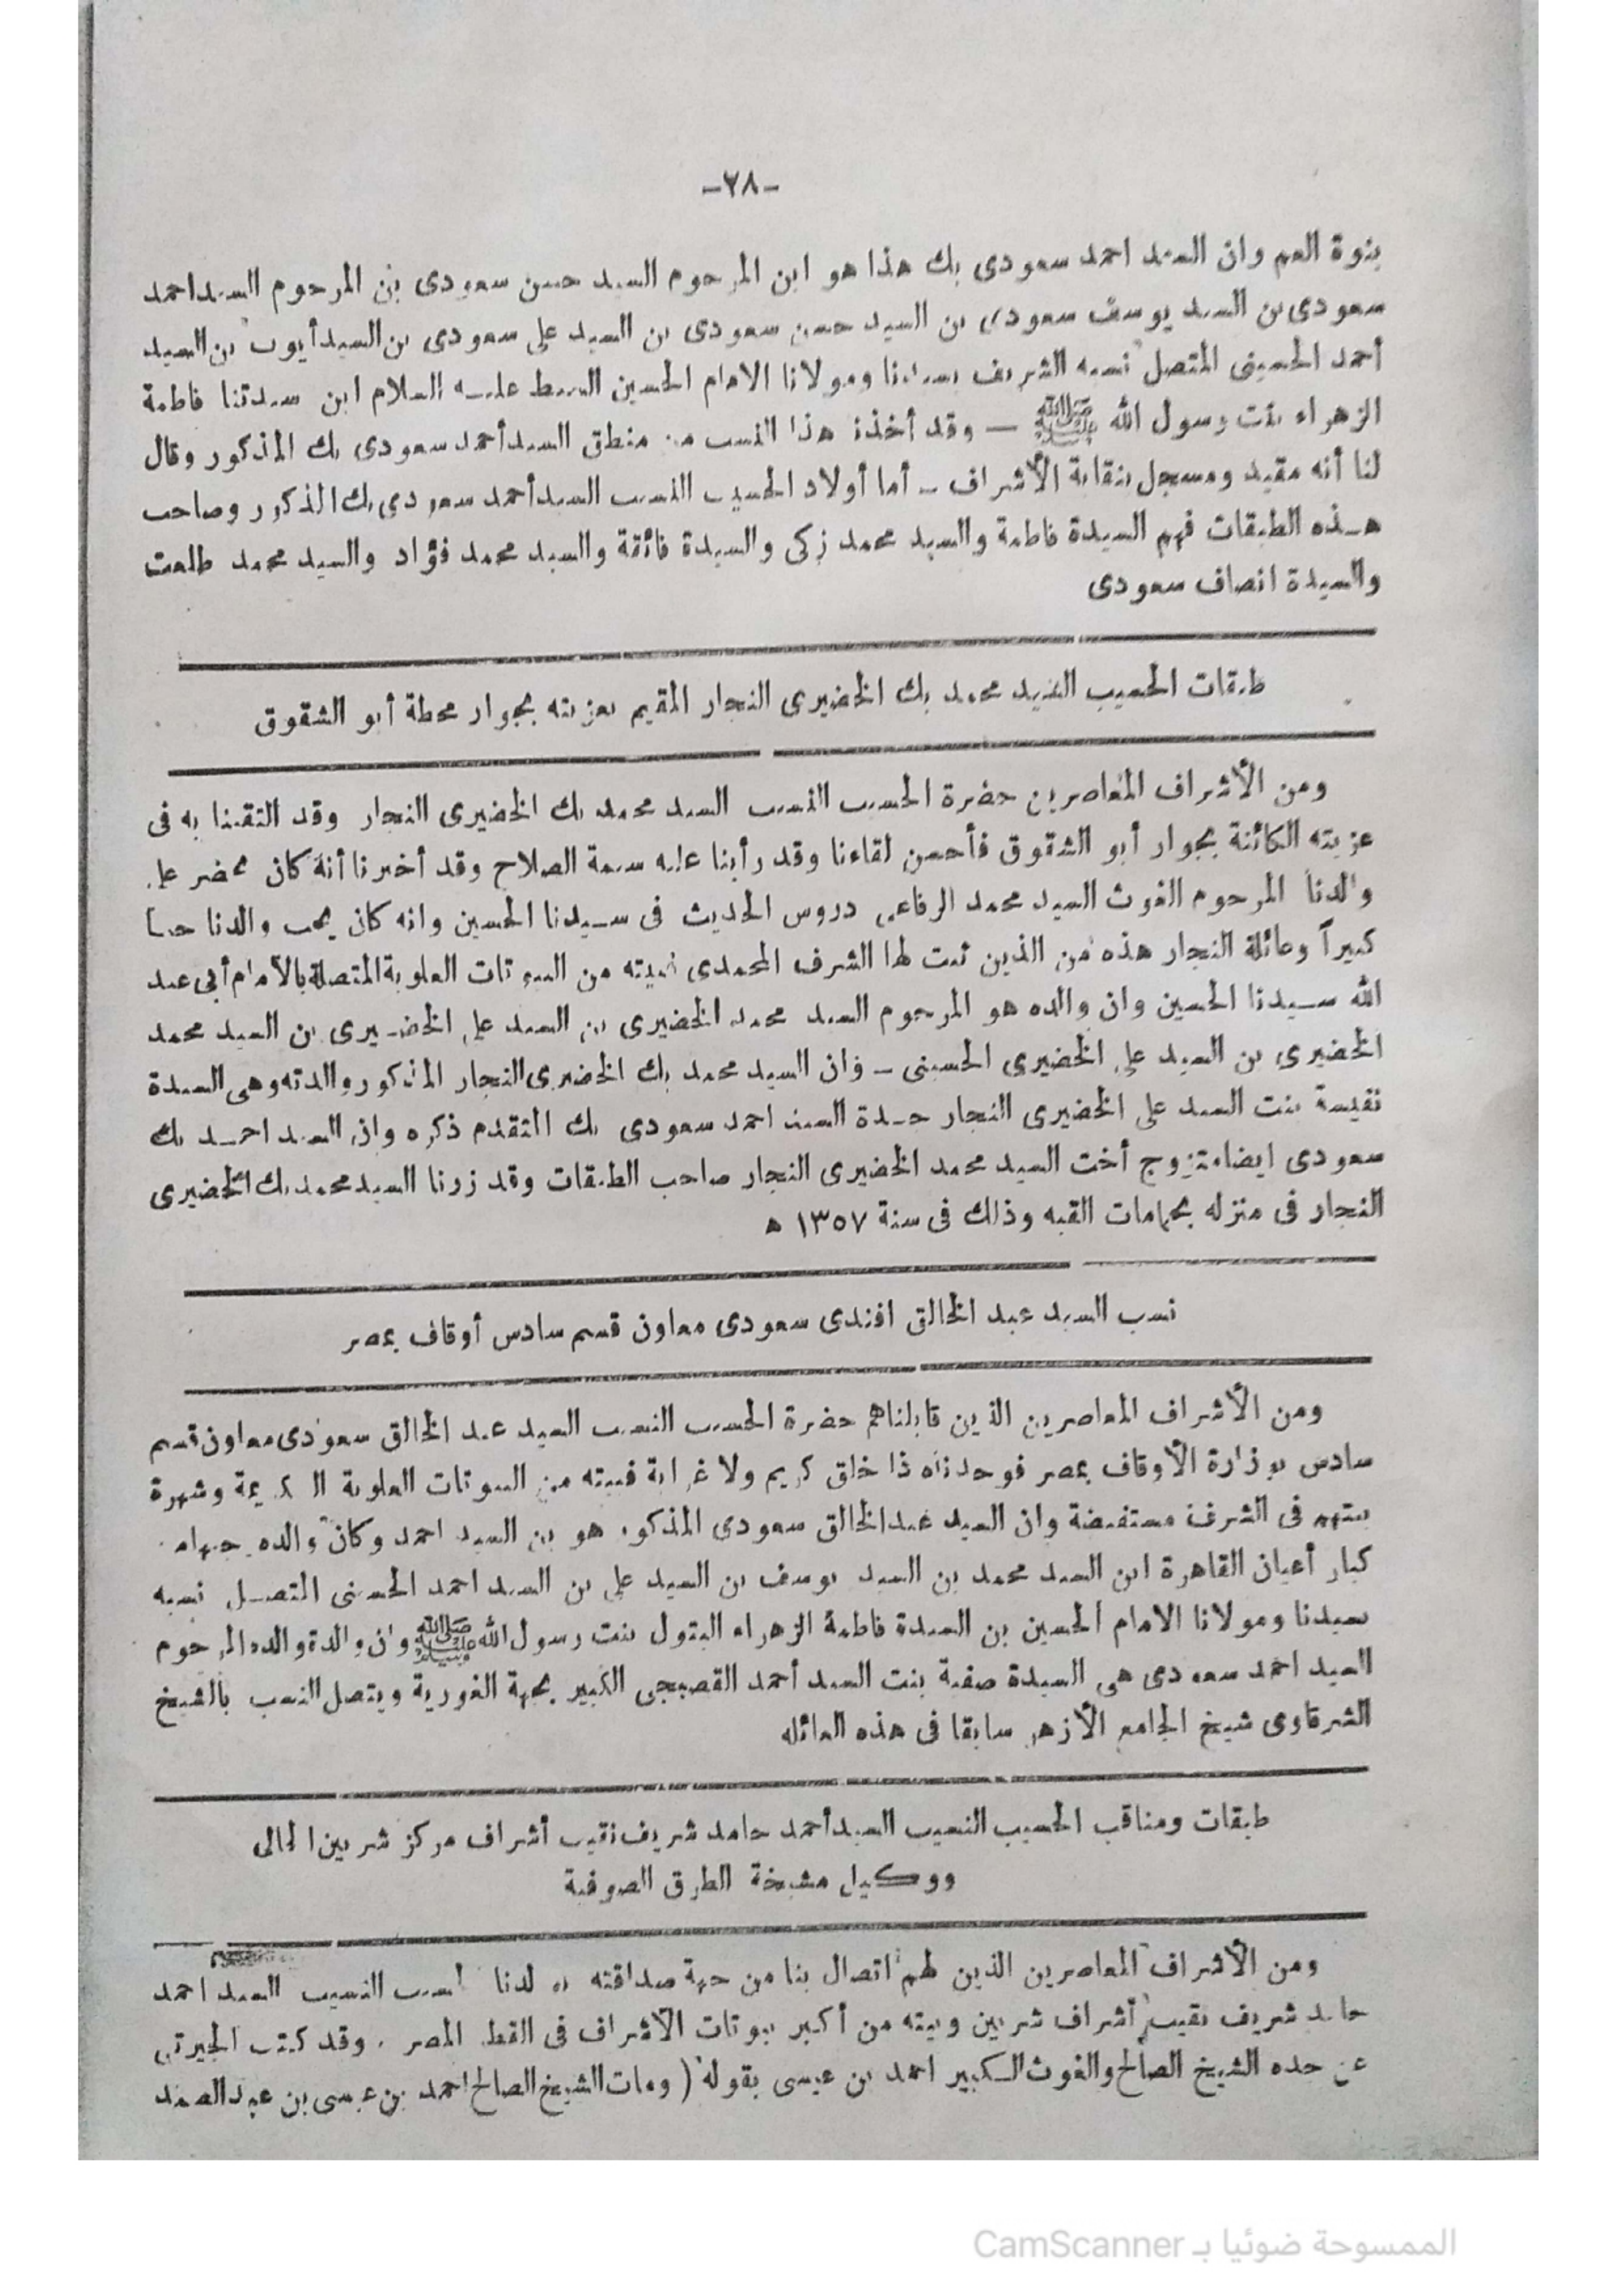 -٢٨-
بنوة العم وان السيد احمد سعودى بك هذا هو ابن المرحوم السيد حسن سعودى بن المرحوم السيد احمد
سعودى بن السيد يوسف سعودى بن السيد حسن سعودى بن السيد على سعودى بن السيد أيوب بن السيد
أحمد الحسينى المتصل نسبه الشريف بسيدنا ومولانا الامام الحسين السبط عليه السلام ابن سيدتنا فاطمة
الزهراء بنت رسول الله ﷺ — وقد أخذنا هذا النسب من منطق السيد أحمد سعودى بك المذكور وقال
لنا أنه مقيد ومسجل بنقابة الأشراف - أما أولاد الحسيب النسيب السيد أحمد سعودى بك الذكور وصاحب
هذه الطبقات فهم السيدة فاطمة والسيد محمد زكى والسيدة فائقة والسيد محمد فؤاد والسيد محمد طلعت
والسيدة انصاف سعودى
طبقات الحسيب السيد محمد بك الخضيرى النجار المقيم بعزبته بجوار محطة أبو الشقوق
ومن الأشراف المعاصرين حضرة الحسيب النسيب السيد محمد بك الخضيرى النجار وقد التقينا به فى
عزبته الكائنة بجوار أبو الشقوق فأحسن لقاءنا وقد رأينا عليه سمة الصلاح وقد أخبرنا أنه كان يحضر على
والدنا المرحوم الغوث السيد محمد الرفاعى دروس الحديث فى سيدنا الحسين وانه كان يحب والدنا حبا
كبيراً وعائلة النجار هذه من الذين ثبت لها الشرف المحمدى فبيته من البيوتات العلوية المتصلة بالأمام أبى عبد
الله سيدنا الحسين وان والده هو المرحوم السيد محمد الخضيرى بن السيد على الخضيرى بن السيد محمد
الخضيرى بن السيد على الخضيرى الحسينى - وان السيد محمد بك الخضيرى النجار المذكور والدته وهى السيدة
نفيسة بنت السيد على الخضيرى النجار جدة السيد احمد سعودى بك المتقدم ذكره وان السيد احمد بك
سعودى ايضا متزوج أخت السيد محمد الخضيرى النجار صاحب الطبقات وقد زرنا السيد محمد بك الخضيرى
النجار فى منزله بحمامات القبه وذلك فى سنة ١٣٥٧ ه
نسب السيد عبد الخالق افندى سعودى معاون قسم سادس أوقاف بمصر
ومن الأشراف المعاصرين الذين قابلناهم حضرة الحسيب النسيب السيد عبد الخالق سعودى معاون قسم
سادس بوزارة الأوقاف بمصر فوجدناه ذا خلق كريم ولا غرابة فبيته من البيوتات العلوية الكريمة وشهرة
بيتهم فى الشرف مستفيضة وان السيد عبد الخالق سعودى المذكور هو بن السيد احمد وكان والده
كبار أعيان القاهرة ابن السيد محمد بن السيد يوسف بن السيد على بن السيد احمد الحسينى المتصل نسبه
بسيدنا ومولانا الامام الحسين بن السيدة فاطمة الزهراء البتول بنت رسول الله ﷺ وان والدة والده المرحوم
السيد احمد سعودى هى السيدة صفية بنت السيد أحمد القصبجى الكبير بجهة الغورية ويتصل النسب بالشيخ
الشرقاوى شيخ الجامع الأزهر سابقا فى هذه العائله
طبقات ومناقب الحسيب النسيب السيد أحمد حامد شريف نقيب أشراف مركز شربين الحالى
ووكيل مشيخة الطرق الصوفية
ومن الأشراف المعاصرين الذين لهم اتصال بنا من جهة صداقته النسيب السيد احمد
حامد شريف نقيب أشراف شربين وبيته من أكبر بيوتات الاشراف فى القطر المصرى وقد كتب الجبرتى
عن جده الشيخ الصالح والغوث الكبير احمد بن عيسى بقوله ( ومات الشيخ الصالح احمد بن عيسى بن عبد الصمد
الممسوحة ضوئيا بـ CamScanner